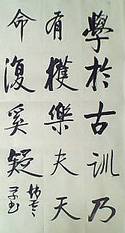 學於古訓乃
有獲樂夫天
命復奚疑